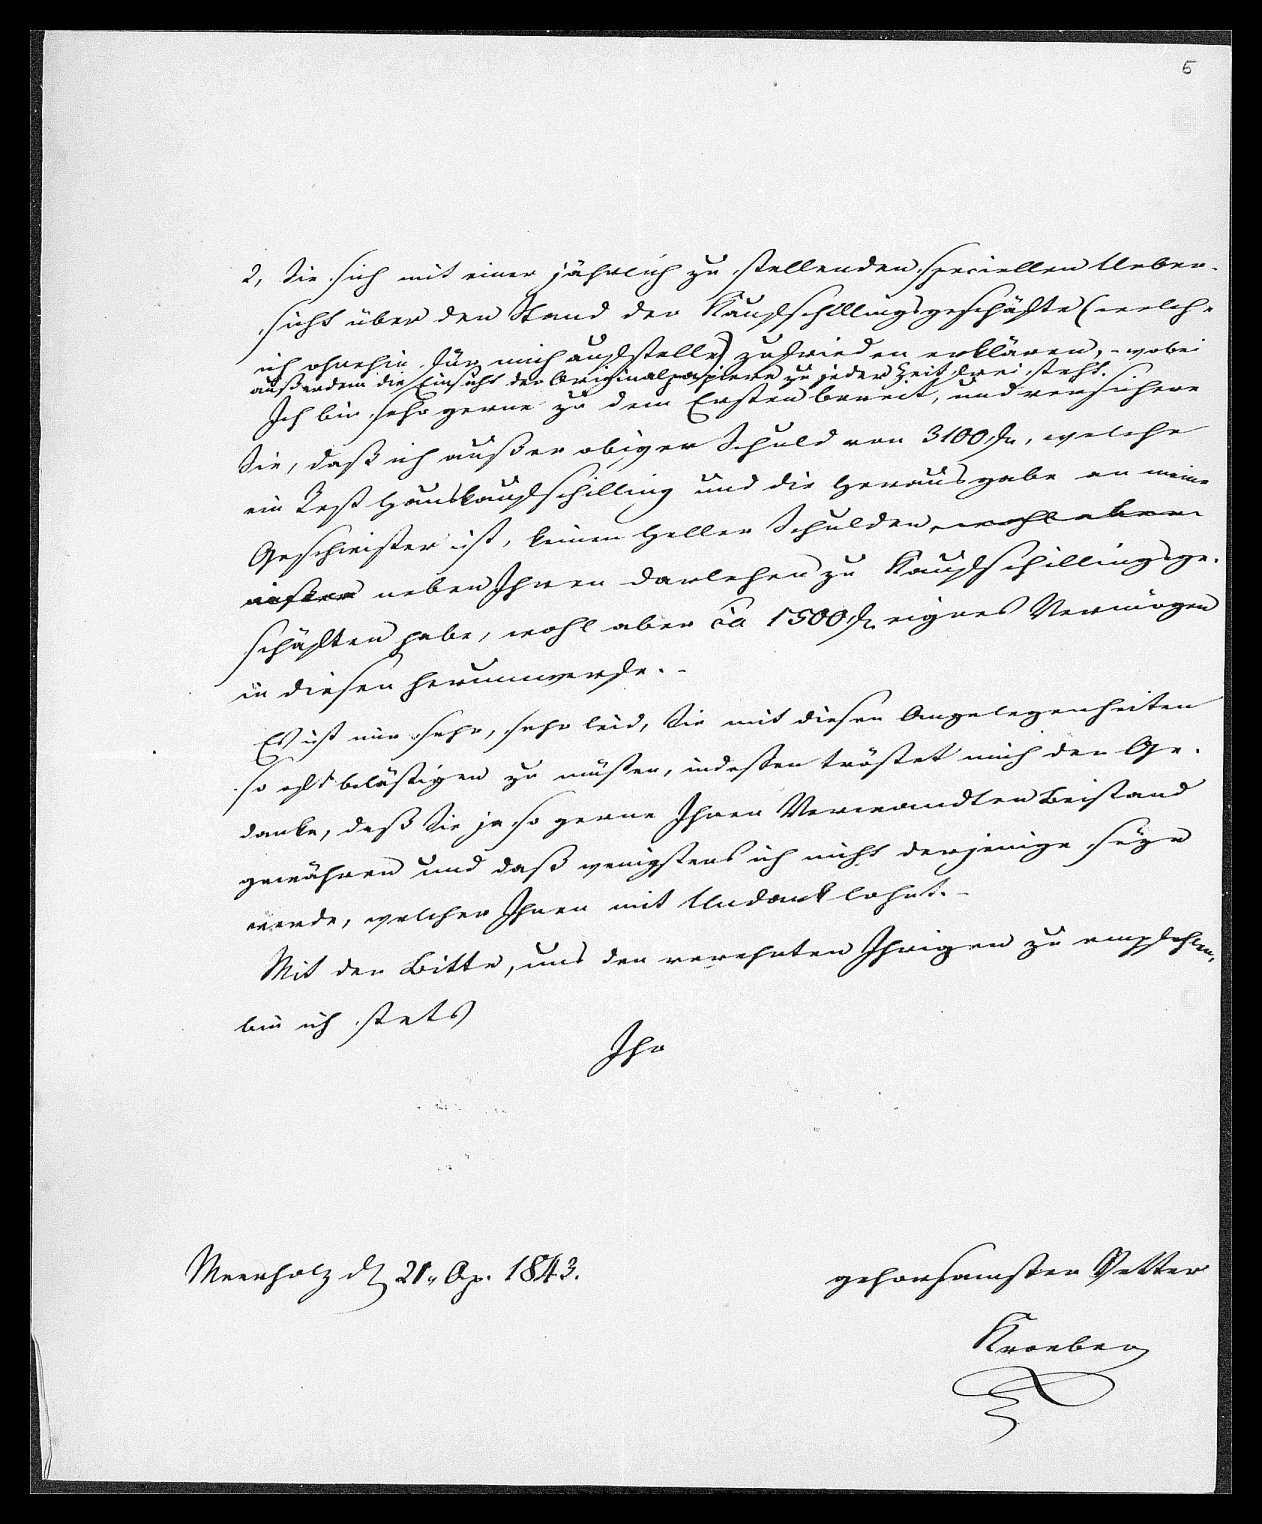 5
2, Sie sich mit einer jährlich zu stellenden speciellen Ueber-
sicht über den Stand der Kaufschillingsgeschäfte (welch-
ich ohnehin für mich aufstelle) zufrieden erklären, - wobei
außerdem die Einsicht der Originalpapiere zu jeder Zeit frei steht.
Ich bin sehr gerne zu dem Ersten bereit, und versichere
Sie, daß ich außer obiger Schuld von 3100 fr, welche
ein Rest Hauskaufschilling und die Herausgabe an meine
Geschwister ist, keinen Heller Schulden, wohl aber
außer neben Ihren Darlehen zu Kaufschillingsge-
schäften habe, wohl aber ca 1500 fr eignes Vermögen
in diesen herumwerfe. -
Es ist mir sehr, sehr leid, Sie mit diesen Angelegenheiten
so oft belästigen zu müßen, indeßen tröstet mich der Ge-
danke, daß Sie ja so gerne Ihren Verwandten Beistand
gewähren und daß wenigstens ich nicht derjenige seyn
werde, welcher Ihnen mit Undank lohnt. -
Mit der Bitte, uns den verehrten Ihrigen zu empfehlen,
bin ich stets
Ihr
Meerholz d 21, Ap. 1843.
gehorsamster Vetter
Kroeber